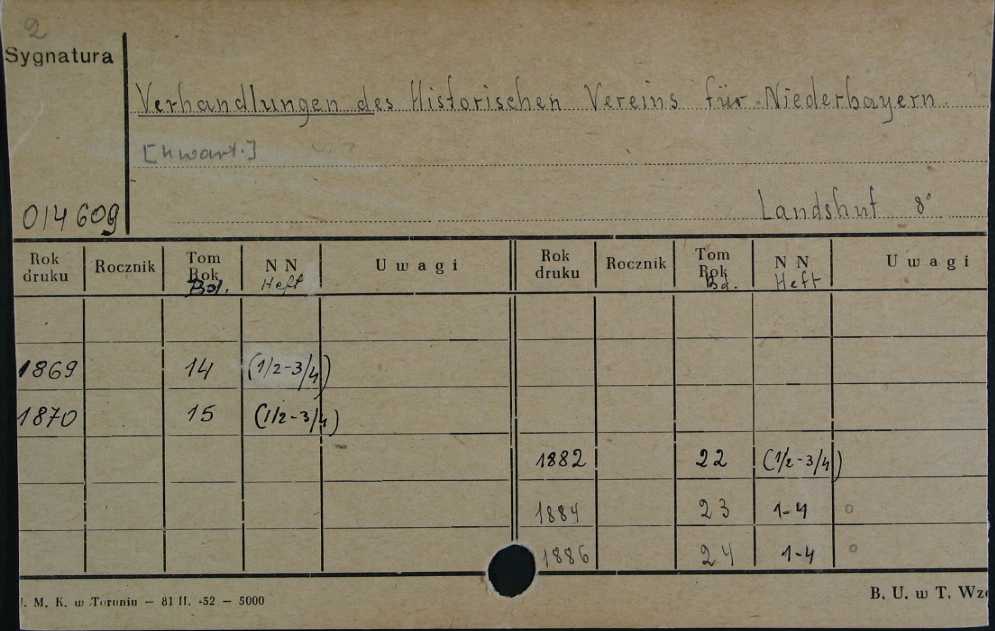 2
Sygnatura
Verhandlungen des Historischen Vereins für Niederbayern
[kwart.]
014609
Landshut 8°
Rok druku Rocznik Tom Rok Bd. NN Heft Uwagi Rok druku Rocznik Tom Rok Bd. NN Heft Uwagi
1869 14 (1/2-3/4)
1870 15 (1/2-3/4)
1882 22 (1/2-3/4)
1884 23 1-4 o
1886 24 1-4 o
. M. K. w Toruniu — 81 II. -52 — 5000
B. U. w T. Wzó